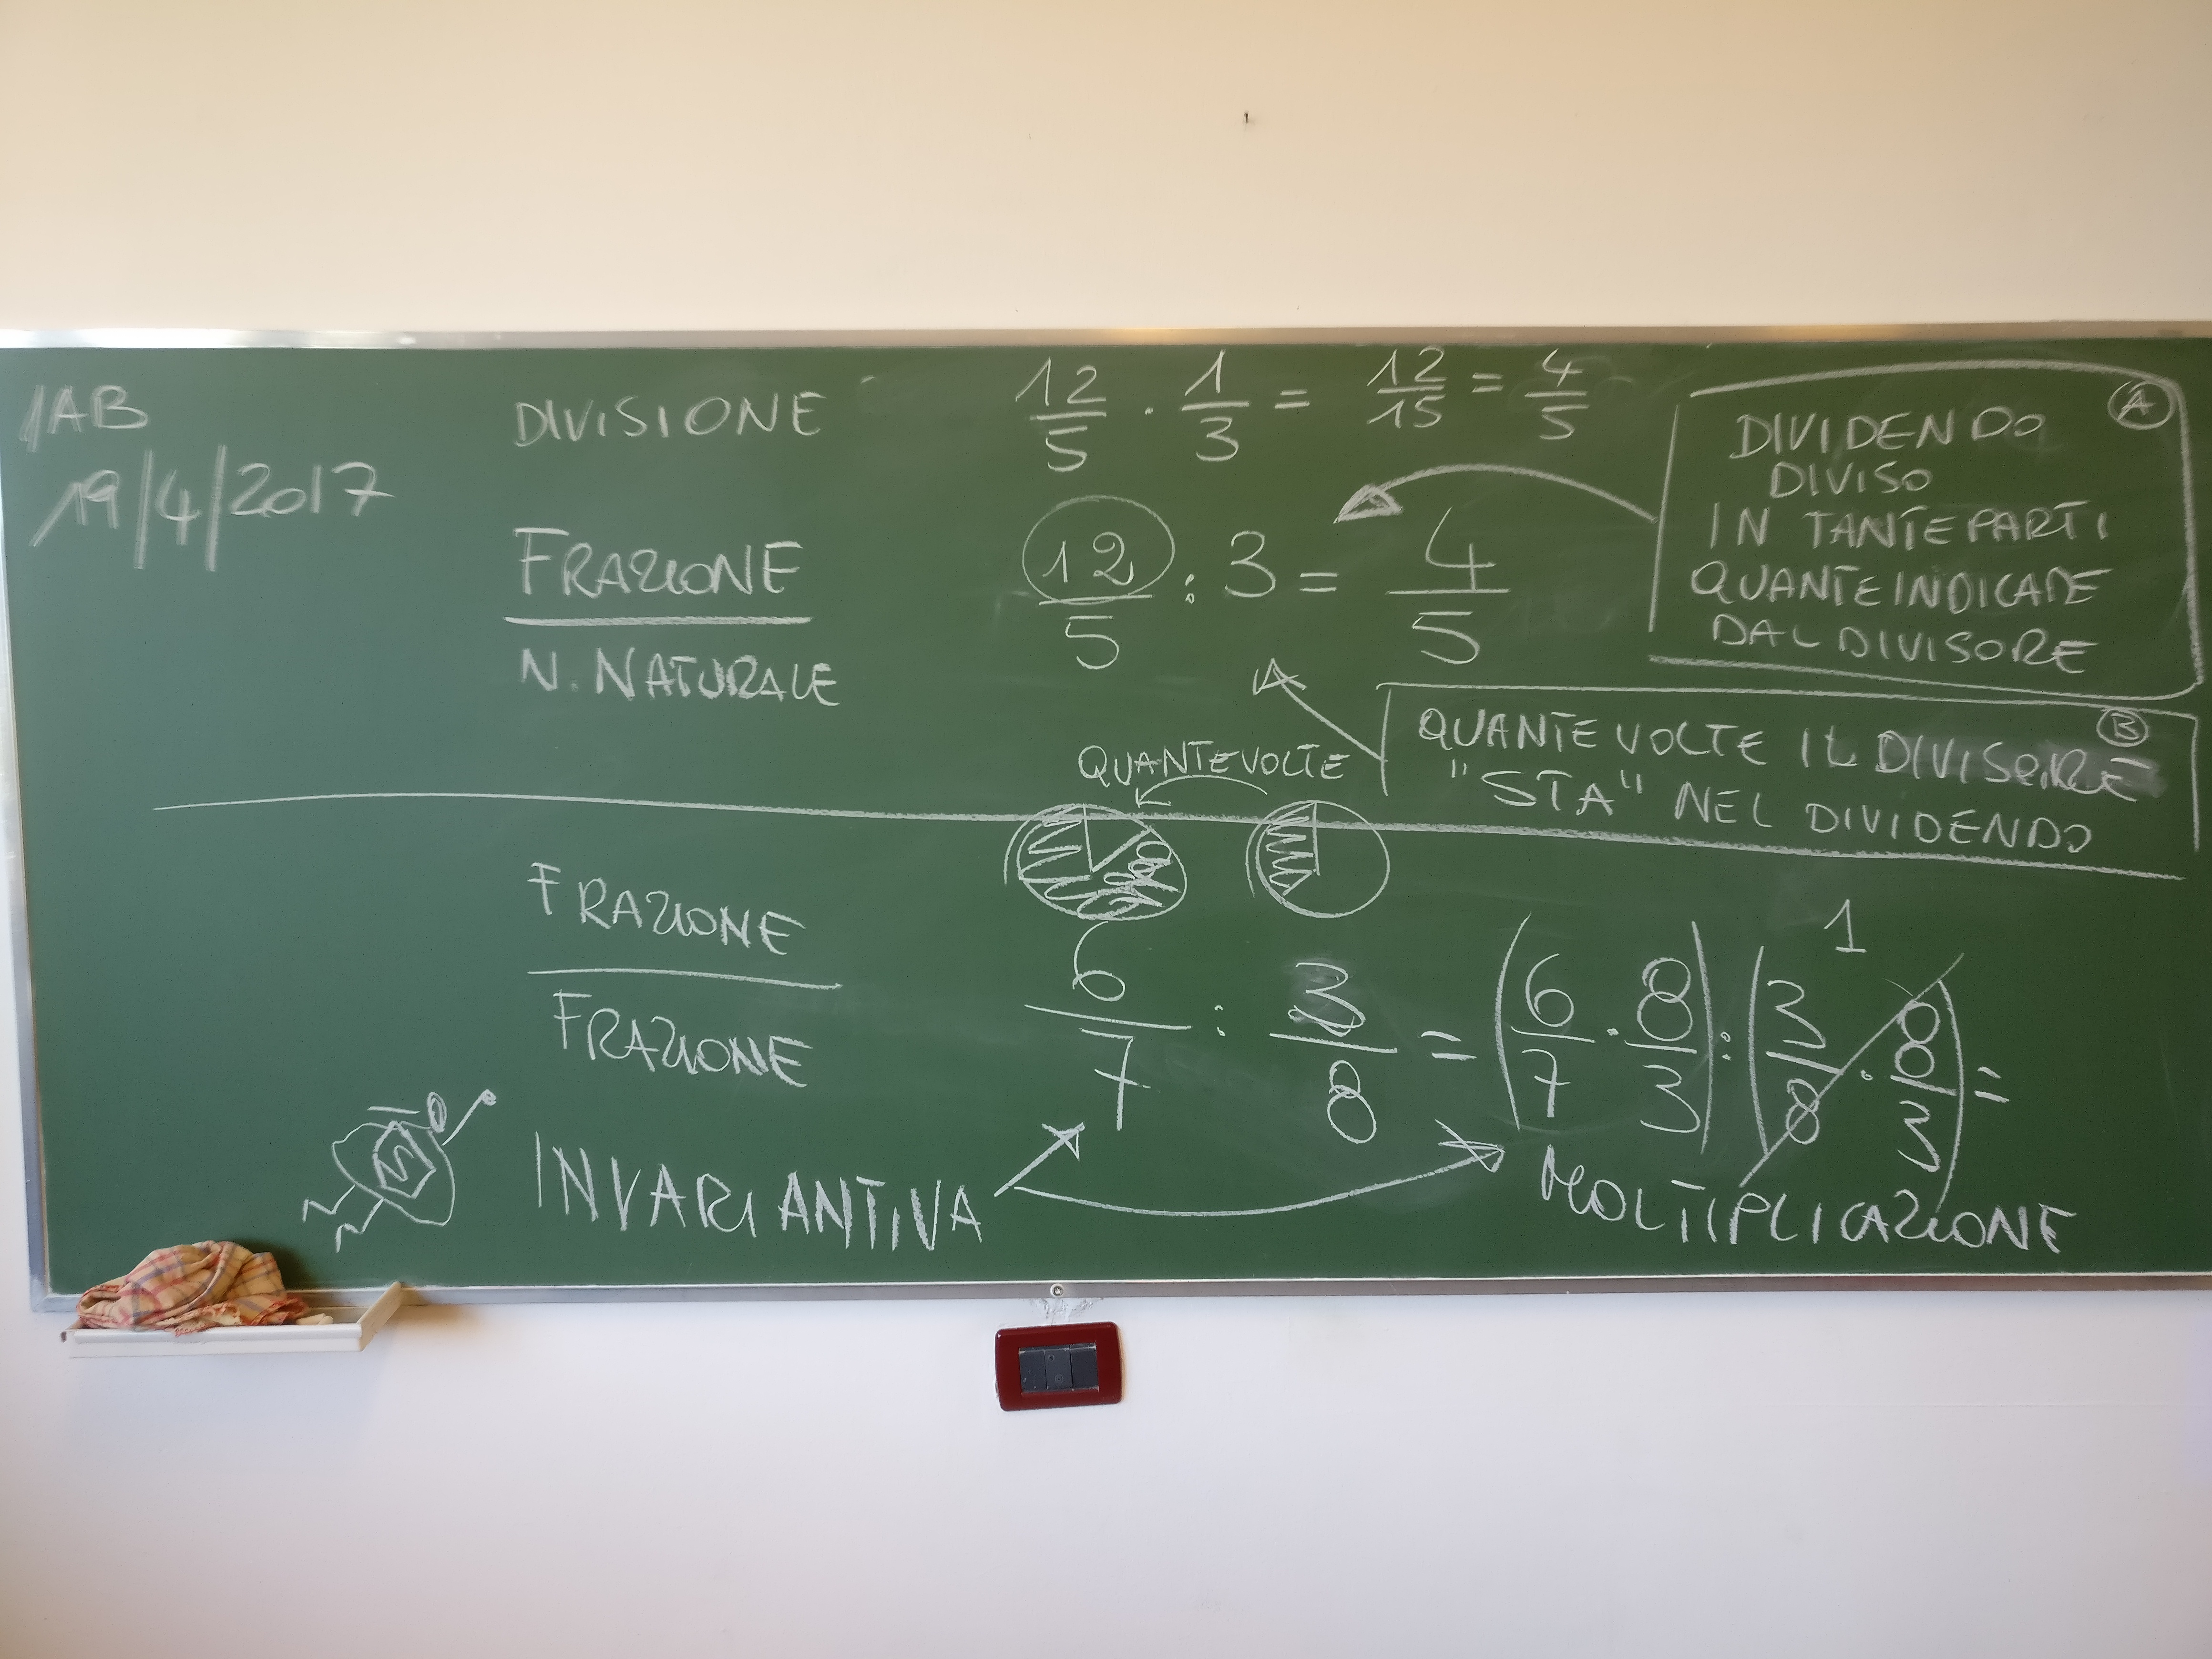 1AB
19/4/2017
DIVISIONE
12/5 · 1/3 = 12/15 = 4/5
FRAZIONE
N. NATURALE
12/5 : 3 = 4/5
A
DIVIDENDO
DIVISO
IN TANTE PARTI
QUANTE INDICATE
DAL DIVISORE
B
QUANTE VOLTE IL DIVISORE
"STA" NEL DIVIDENDO
QUANTE VOLTE
FRAZIONE
FRAZIONE
6/7 : 3/8 = (6/7 · 8/3) : (3/8 · 8/3) =
1
S
INVARIANTIVA
MOLTIPLICAZIONE